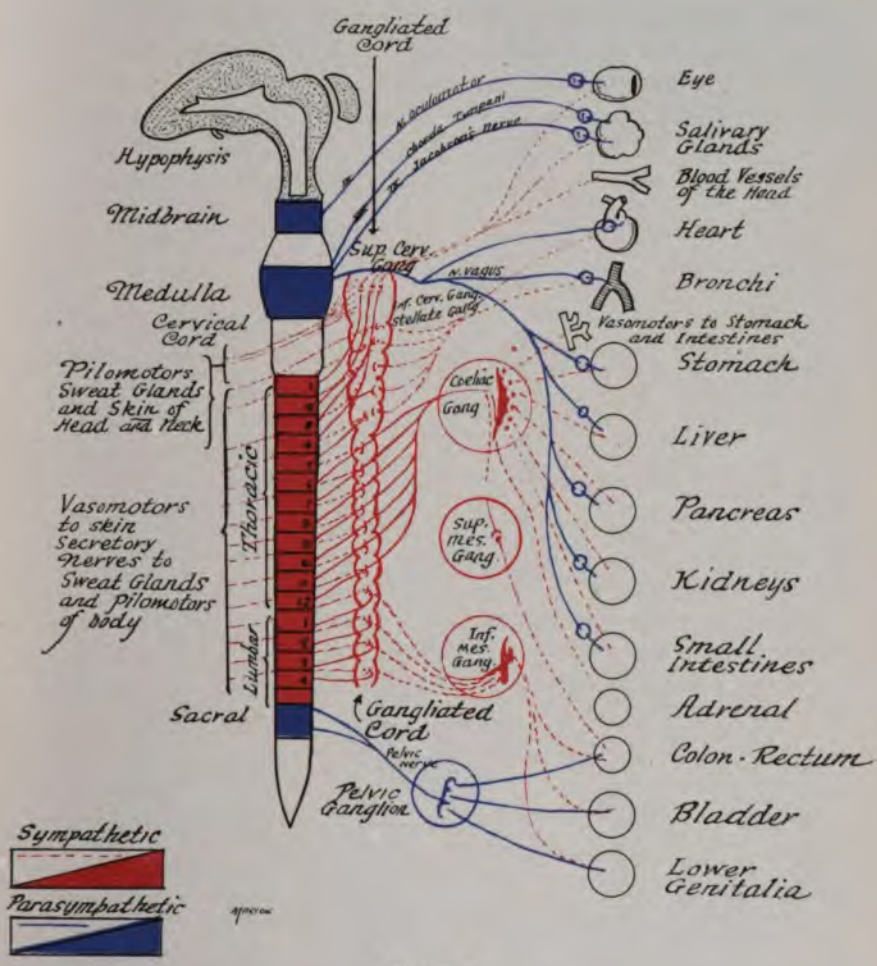 Gangliated
Cord
Hypophysis
Midbrain
Medulla
Cervical
Cord
Pilomotors
Sweat Glands
and Skin of
Head and Neck
Thoracic
Vasomotors
to skin
Secretory
Nerves to
Sweat Glands
and Pilomotors
of body
Lumbar
Sacral
N. oculomotor
Chorda Tympani
IX Jacobson's nerve
Sup. Cerv.
Gang
N. vagus
Inf. Cerv. Gang.
Stellate Gang.
Coeliac
Gang
Sup.
Mes.
Gang.
Inf.
mes.
Gang.
Gangliated
Cord
Pelvic
nerve
Pelvic
Ganglion
Eye
Salivary
Glands
Blood Vessels
of the Head
Heart
Bronchi
Vasomotors to Stomach
and Intestines
Stomach
Liver
Pancreas
Kidneys
Small
Intestines
Adrenal
Colon - Rectum
Bladder
Lower
Genitalia
Sympathetic
Parasympathetic